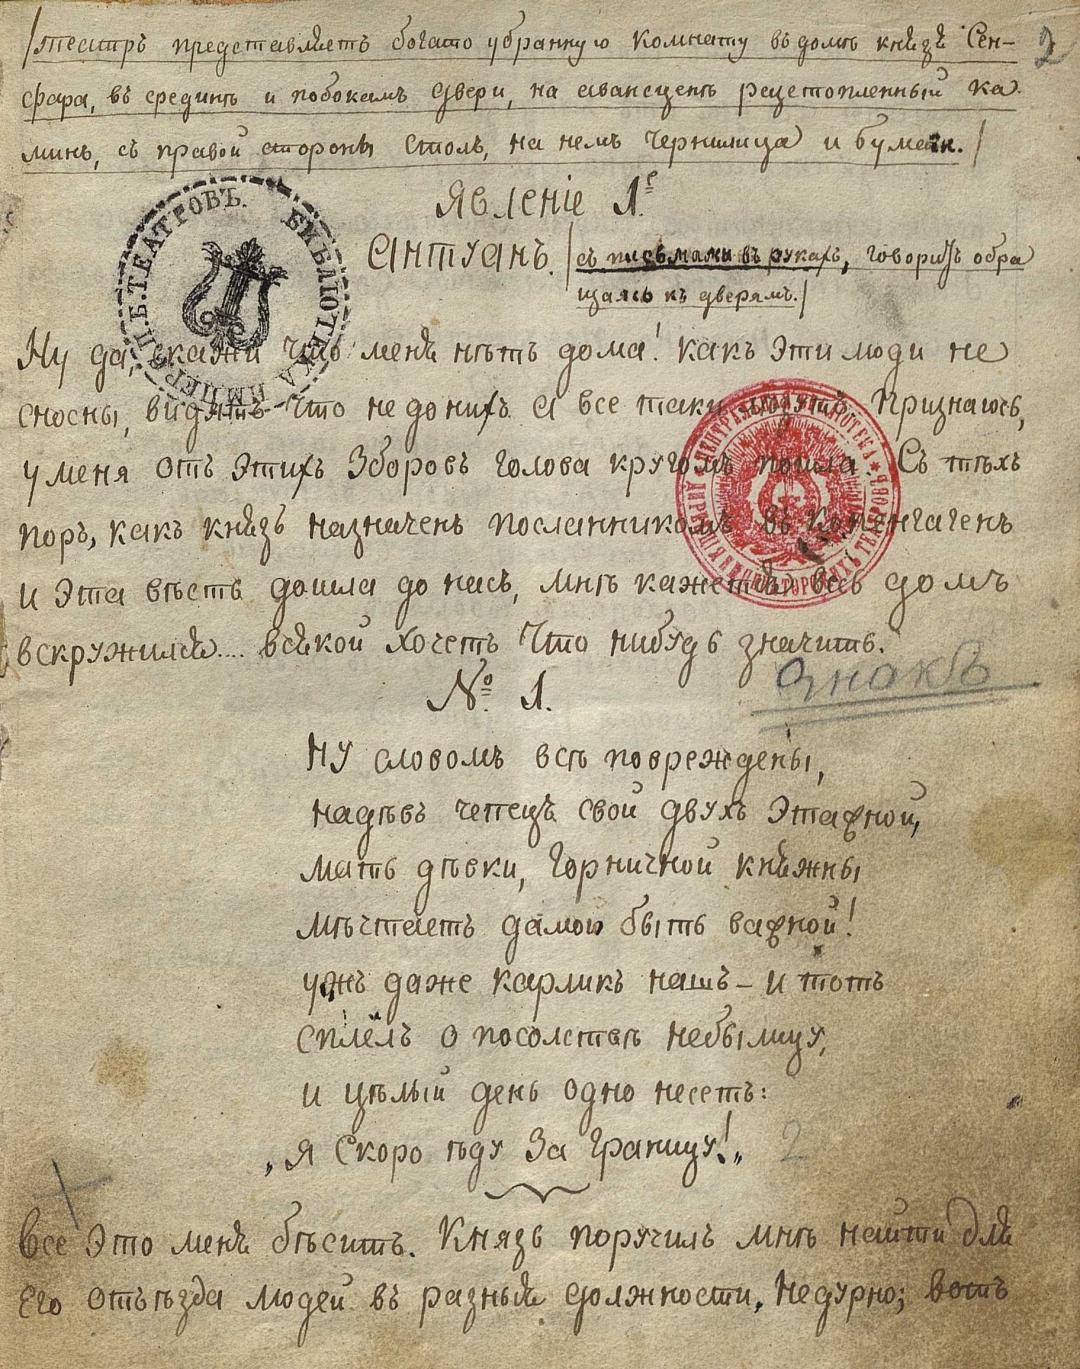 /театръ представляетъ богато убранную комнату въ домѣ князя Сен- 2
сфара, въ срединѣ и побокамъ двери, на авансценѣ растопленный ка-
минъ, съ правой стороны столъ, на немъ чернилица и бумаги./
Явленіе 1е.
Антуанъ. /съ письмами въ рукахъ, говоритъ обра
щаясь къ дверямъ./
Ну да, скажи что меня нѣтъ дома! какъ эти люди не
сносны, видятъ что не до нихъ а все таки идутъ. Признаюсь,
у меня отъ этихъ сборовъ голова кругомъ пошла. Съ тѣхъ
поръ, какъ князь назначенъ посланникомъ въ Копенгагенъ
и эта вѣсть дошла до насъ, мнѣ кажется весь домъ
вскружился.... всякой хочетъ что нибудь значить.
знакъ
№ 1.
Ну словомъ всѣ повреждены,
надѣвъ чепецъ свой двухъ этажной,
мать дѣвки, горничной княжны
мѣчтаетъ дамою быть важной!
ужъ даже карликъ нашъ – и тотъ
сплёлъ о посольствѣ небылицу,
и цѣлый день одно несетъ:
„я скоро ѣду за границу!„ 2
все это меня бѣситъ. Князь поручилъ мнѣ найти для
его отъѣзда людей въ разныя должности. Недурно; вотъ
БИБЛІОТЕКА ИМПЕР. С.П.Б. ТЕАТРОВЪ.
ЦЕНТРАЛЬНАЯ БИБЛІОТЕКА